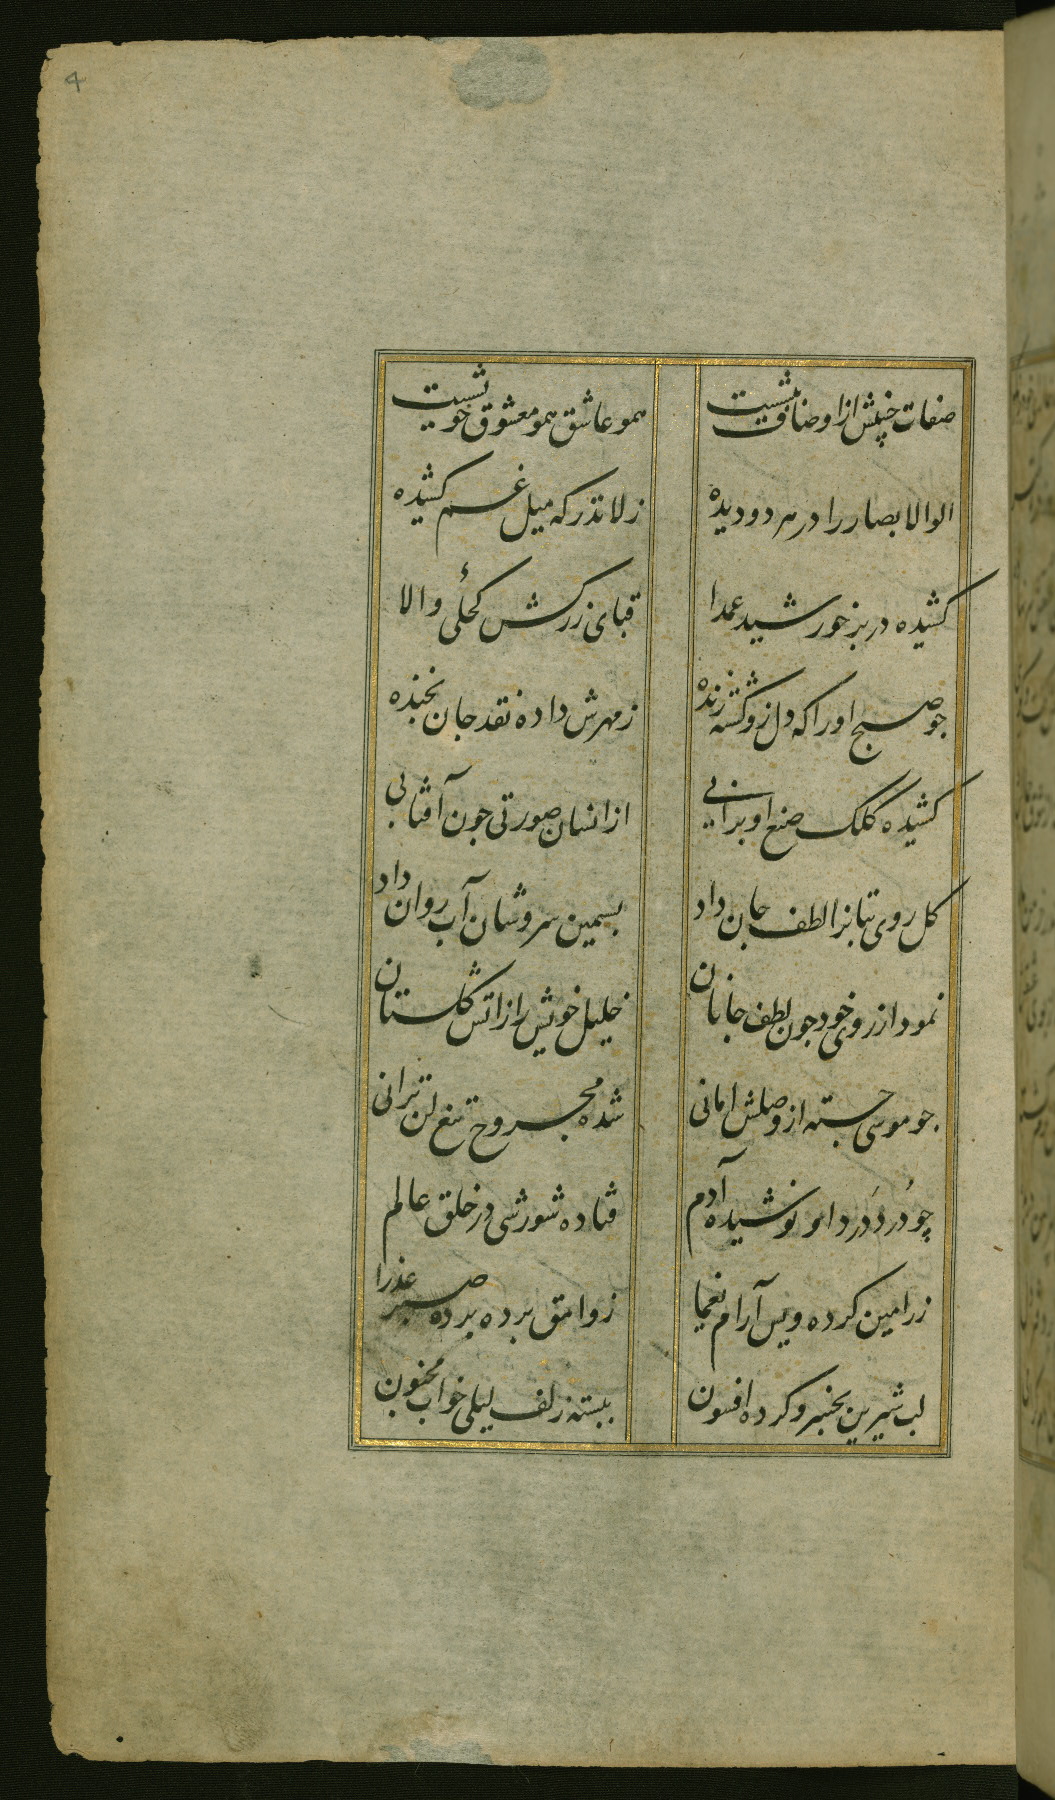 4
صفات حسنش از اوصاف بیشیت
همو عاشق همو معشوق خویشیت
الوالابصار را در هر دو دیده
ز لاتدرکه میل غم کشیده
کشیده در بر خورشید عمدا
قبای زرکش کحلئ والا
جو صبح اورا که دل زو کشته زنده
ز مهرش داده نقد جان بخنده
کشیده کلک صنع او بر آبی
از انسان صورتی جون آفتابی
کل روی بتانرا لطف جان داد
بسمین سروشان آب روان داد
نمود از روی خود جون لطف جانان
خلیل خویش را ز اتش کلستان
جو موسی جسته از وصلش امانی
شده مجروح تیغ لن ترانی
چو دُرد دَرد او نوشیده آدم
فتاده شورشی در خلق عالم
ز رامین کرده ویس آرام یغما
ز وامق برده برده صبر عذرا
لب شیرین بخسرو کرده افسون
ببسته زلف لیلی خواب مجنون